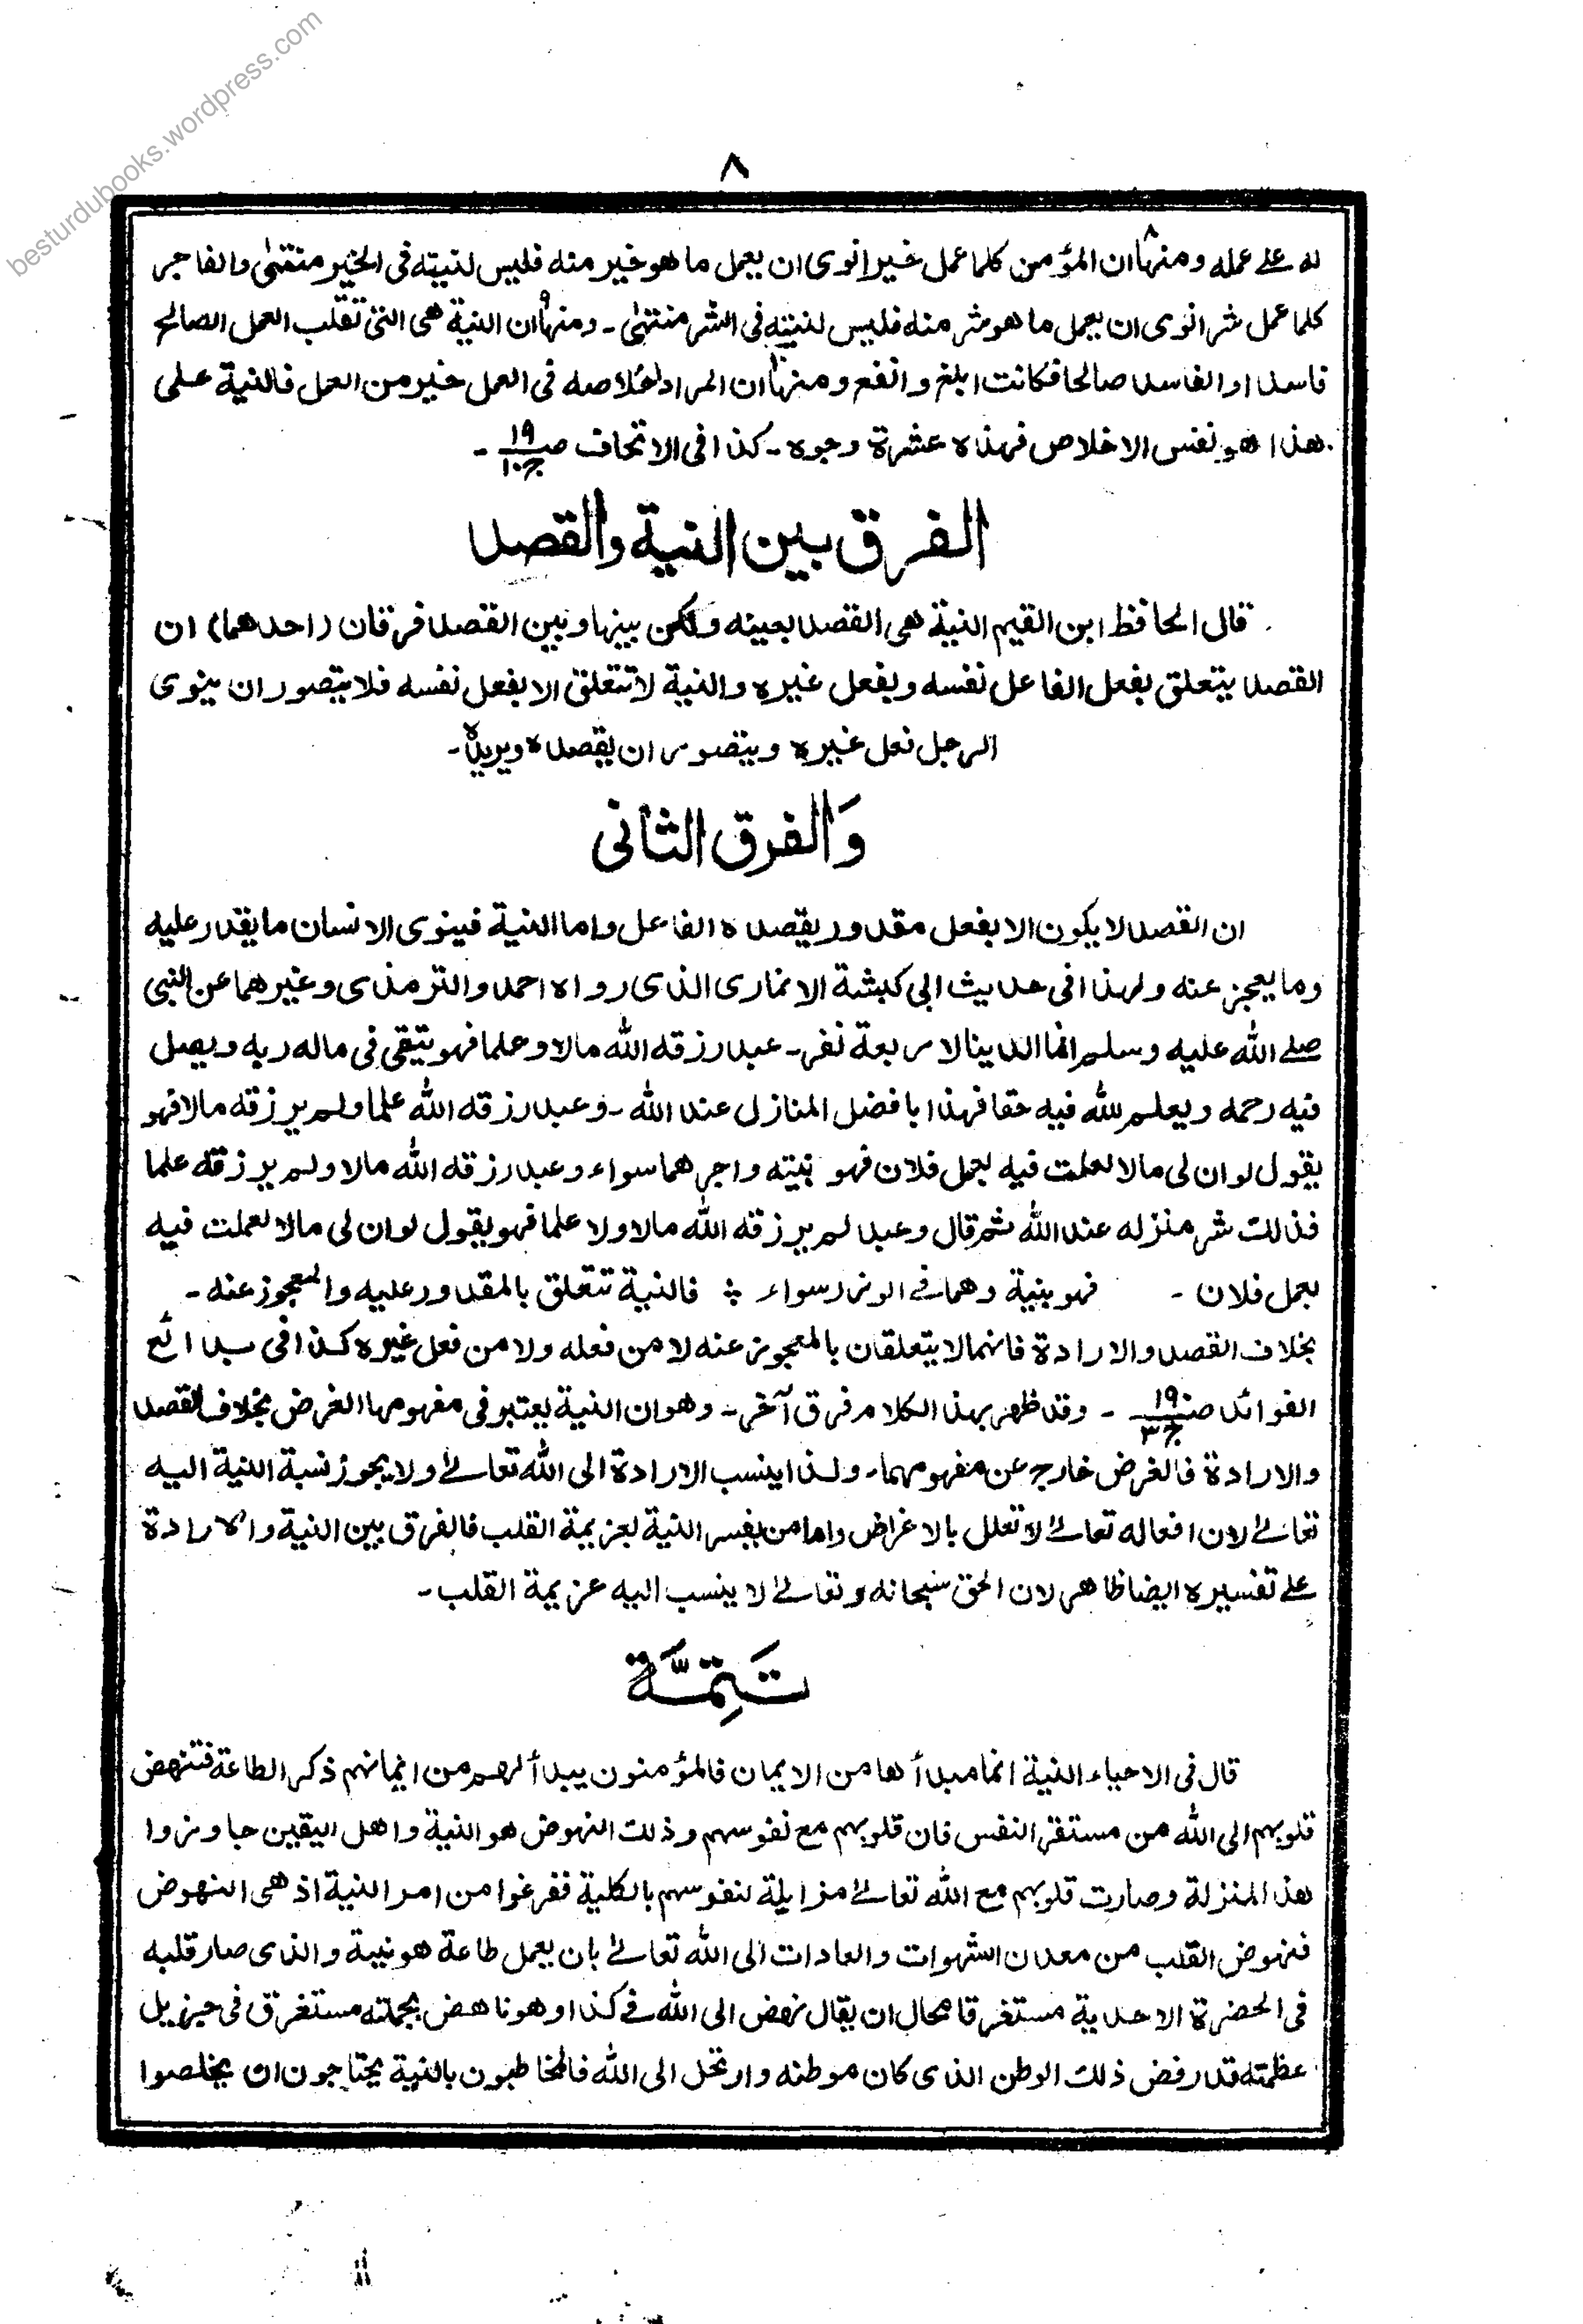 besturdubooks.wordpress.com
٨
له علے عمله ومنها٨ ان المؤمن كلما عمل خيرا نوى ان يعمل ما هو خير منه فليس لنيته فى الخير منتهىٰ والفاجر
كلما عمل شرا نوى ان يعمل ما هو شر منه فليس لنيته فى الشر منتهىٰ ـ ومنها٩ ان النية هى التى تقلب العمل الصالح
فاسدا او الفاسد صالحا فكانت ابلغ وانفع ومنها١٠ ان المراد اخلاصه فى العمل خير من العمل فالنية على
هذا هو نفس الاخلاص فهذه عشرة وجوه ـ كذا فى الاتحاف صـ١٩ ج١٠ ـ
الفرق بين النية والقصد
قال الحافظ ابن القيم النية هى القصد بعينه ولكن بينها وبين القصد فرقان (احدهما) ان
القصد يتعلق بفعل الفاعل نفسه وبفعل غيره والنية لا تتعلق الا بفعل نفسه فلا يتصور ان ينوى
الرجل فعل غيره ويتصور ان يقصده ويريده ـ
وَالفرق الثانى
ان القصد لا يكون الا بفعل مقدور يقصده الفاعل واما النية فينوى الانسان ما يقدر عليه
وما يعجز عنه ولهذا فى حديث ابى كبشة الانمارى الذى رواه احمد والترمذى وغيرهما عن النبى
صلے الله عليه وسلم انما الدينا لاربعة نفر ـ عبد رزقه الله مالا وعلما فهو يتقى فى ماله ربه ويصل
فيه رحمه ويعلم لله فيه حقا فهذا بافضل المنازل عند الله ـ وعبد رزقه الله علما ولم يرزقه مالا فهو
يقول لو ان لى مالا لعملت فيه بعمل فلان فهو بنيته واجرهما سواء وعبد رزقه الله مالا ولم يرزقه علما
فذلك شر منزله عند الله ثم قال وعبد لم يرزقه الله مالا ولا علما فهو يقول لو ان لى مالا لعملت فيه
بعمل فلان ـ فهو بنية وهما فے الوزر سواء ؞ فالنية تتعلق بالمقدور عليه والمعجوز عنه ـ
بخلاف القصد والارادة فانهما لا يتعلقان بالمعجوز عنه لا من فعله ولا من فعل غيره كذا فى بدائع
الفوائد صـ١٩ ج٣ ـ وقد ظهر بهذا الكلام فرق آخر ـ وهو ان النية يعتبر فى مفهومها الغرض بخلاف القصد
والارادة فالغرض خارج عن مفهومهما ـ ولذا ينسب الارادة الى الله تعالےٰ ولا يجوز نسبة النية اليه
تعالےٰ لان افعاله تعالےٰ لا تعلل بالاغراض واما من يفسر النية بعزيمة القلب فالفرق بين النية والارادة
علے تفسيره ايضا ظاهر لان الحق سبحانه وتعالےٰ لا ينسب اليه عزيمة القلب ـ
تَتِمَّة
قال فى الاحياء النية انما مبدأها من الايمان فالمؤمنون يبدأ لهم من ايمانهم ذكر الطاعة فتنهض
قلوبهم الى الله من مستقر النفس فان قلوبهم مع نفوسهم وذلك النهوض هو النية واهل اليقين جاوزوا
هذه المنزلة وصارت قلوبهم مع الله تعالےٰ مزايلة لنفوسهم بالكلية ففرغوا من امر النية اذ هى النهوض
فنهوض القلب من معدن الشهوات والعادات الى الله تعالےٰ بان يعمل طاعة هو نية والذى صار قلبه
فى الحضرة الاحدية مستغرقا محال ان يقال نهض الى الله فے كذا وهو ناهض بجملته مستغرق فى جزيل
عظمته قد رفض ذلك الوطن الذى كان موطنه وارتحل الى الله فالمخاطبون بالنية يحتاجون ان يخلصوا